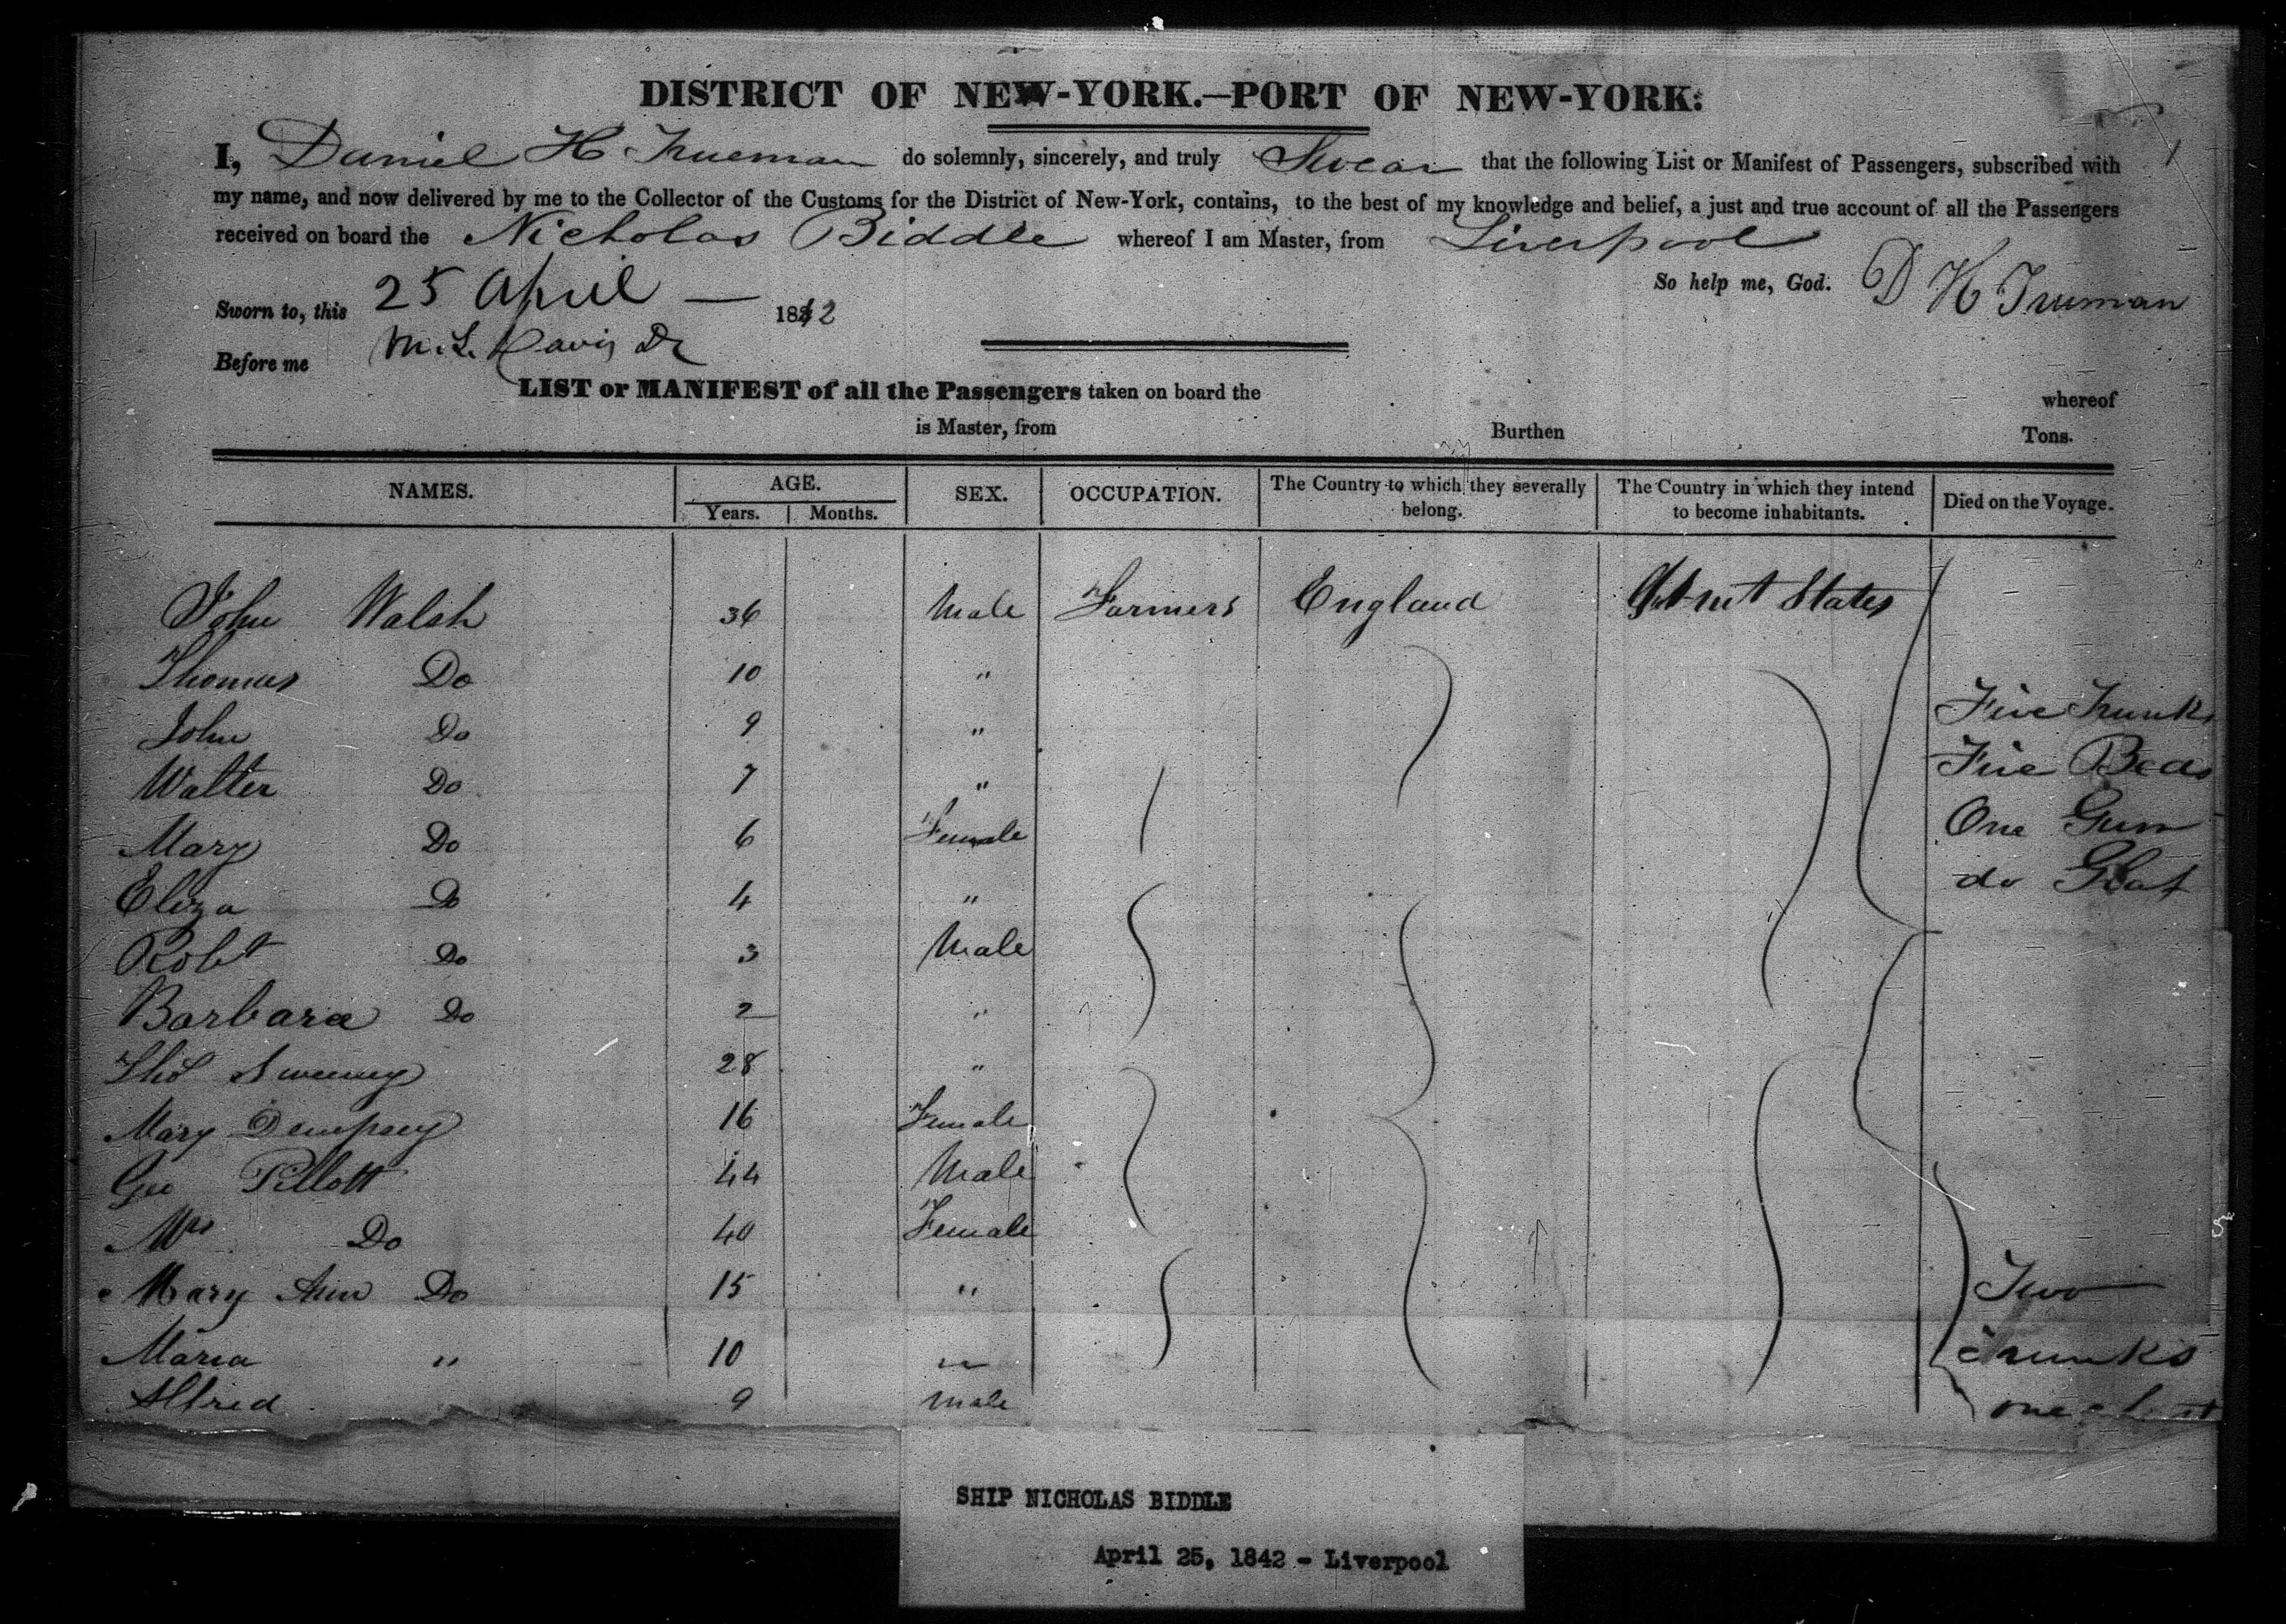 DISTRICT OF NEW-YORK.—PORT OF NEW-YORK.
I, Daniel H Trueman do solemnly, sincerely, and truly Swear that the following List or Manifest of Passengers, subscribed with
my name, and now delivered by me to the Collector of the Customs for the District of New-York, contains, to the best of my knowledge and belief, a just and true account of all the Passengers
received on board the Nicholas Biddle whereof I am Master, from Liverpool
So help me, God. D H Truman
Sworn to, this 25 April — 1842
Before me M. L. Davis
LIST or MANIFEST of all the Passengers taken on board the whereof
is Master, from Burthen Tons.
NAMES. AGE. SEX. OCCUPATION. The Country to which they severally belong. The Country in which they intend to become inhabitants. Died on the Voyage.
Years. Months.
John Walsh 36 Male Farmers England States
Thomas Do 10 "
Five Trunks
John Do 9 "
Five Beds
Walter Do 7 "
One Gun
Mary Do 6 Female
do
Eliza Do 4 "
Robt Do 3 Male
Barbara Do 2 "
Thos Sweeney 28 "
Mary Dempsey 16 Female
Geo Pillott 44 Male
Mrs Do 40 Female
Mary Ann Do 15 " Two
Maria " 10 " Trunks
Alfred 9 Male one
SHIP NICHOLAS BIDDLE
April 25, 1842 - Liverpool